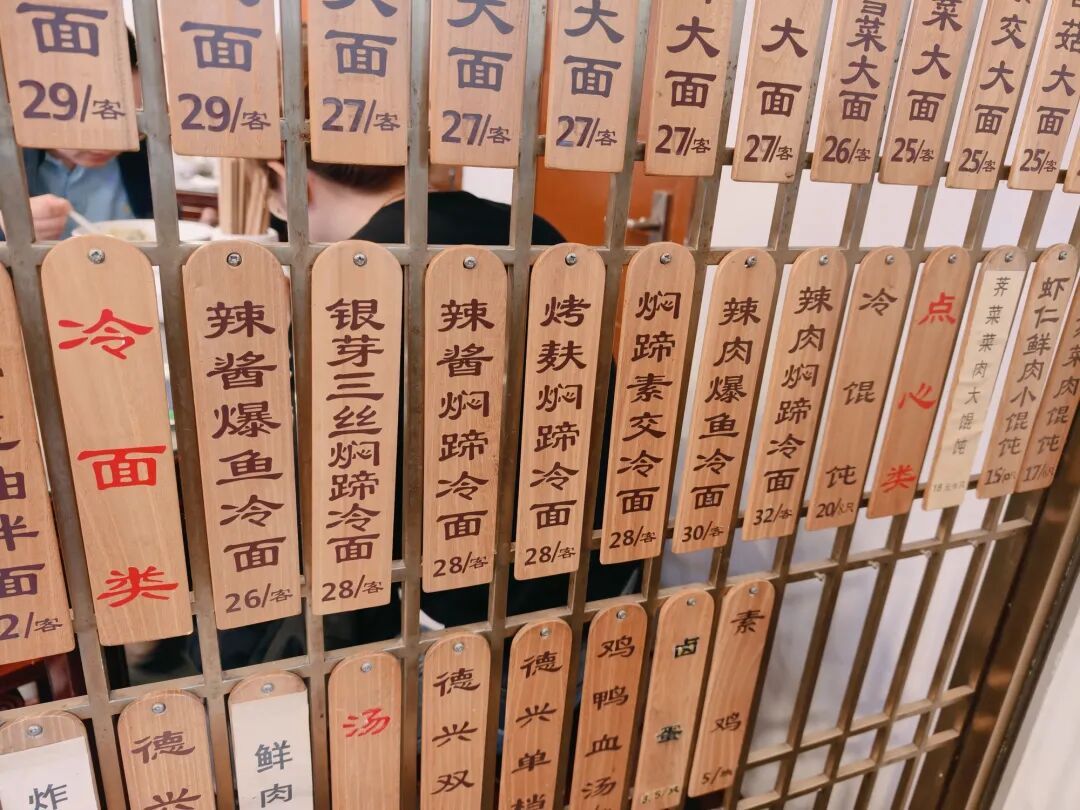 面
29/客
面
29/客
面
27/客
大面
27/客
大面
27/客
大面
27/客
大面
27/客
菜大面
26/客
菜大面
25/客
交大面
25/客
菇大面
25/客
面
2/客
冷面类
辣酱爆鱼冷面
26/客
银芽三丝焖蹄冷面
28/客
辣酱焖蹄冷面
28/客
烤麸焖蹄冷面
28/客
焖蹄素交冷面
28/客
辣肉爆鱼冷面
30/客
辣肉焖蹄冷面
32/客
冷馄饨
20/8只
点心类
荠菜菜肉大馄饨
虾仁鲜肉小馄饨
15/
菜肉馄饨
17/
炸
德兴
鲜肉
汤
德兴双
德兴单档
鸡鸭血汤
卤蛋
素鸡
5/